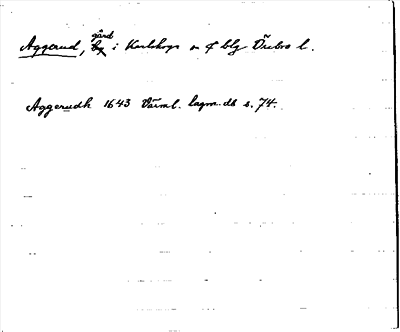 Aggerud, gård i Karlskoga sn o blg Örebro l.
Aggerudh 1643 Värml. lagm.db s. 74.